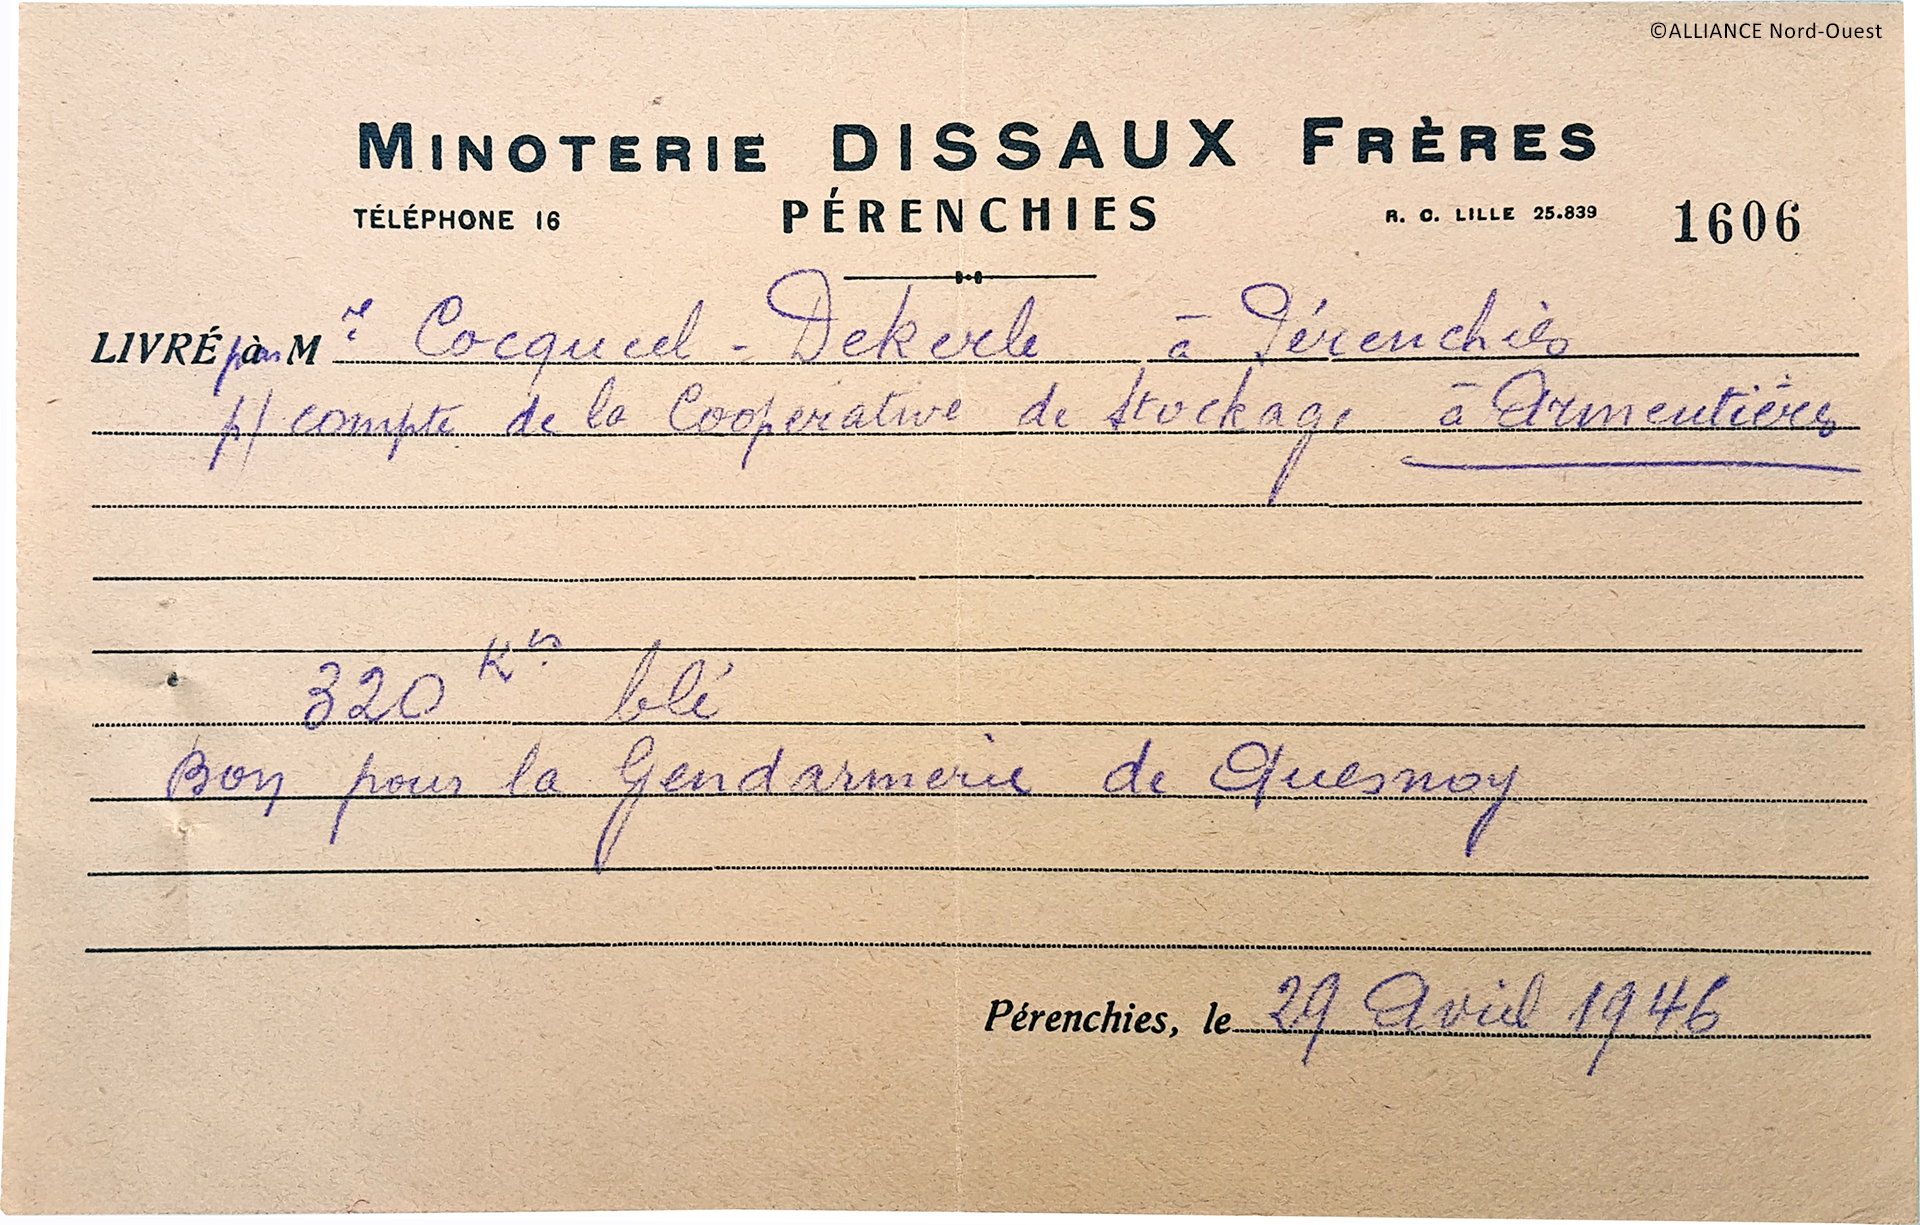 ©ALLIANCE Nord-Ouest
MINOTERIE DISSAUX FRÈRES
TÉLÉPHONE 16 PÉRENCHIES R. C. LILLE 25.839 1606
LIVRÉ à par M r Cocqueel - Dekerle à Pérenchies
p/ compte de la Coopérative de Stockage à Armentières
320 Kos blé
Bon pour la Gendarmerie de Quesnoy
Pérenchies, le 29 Avril 1946